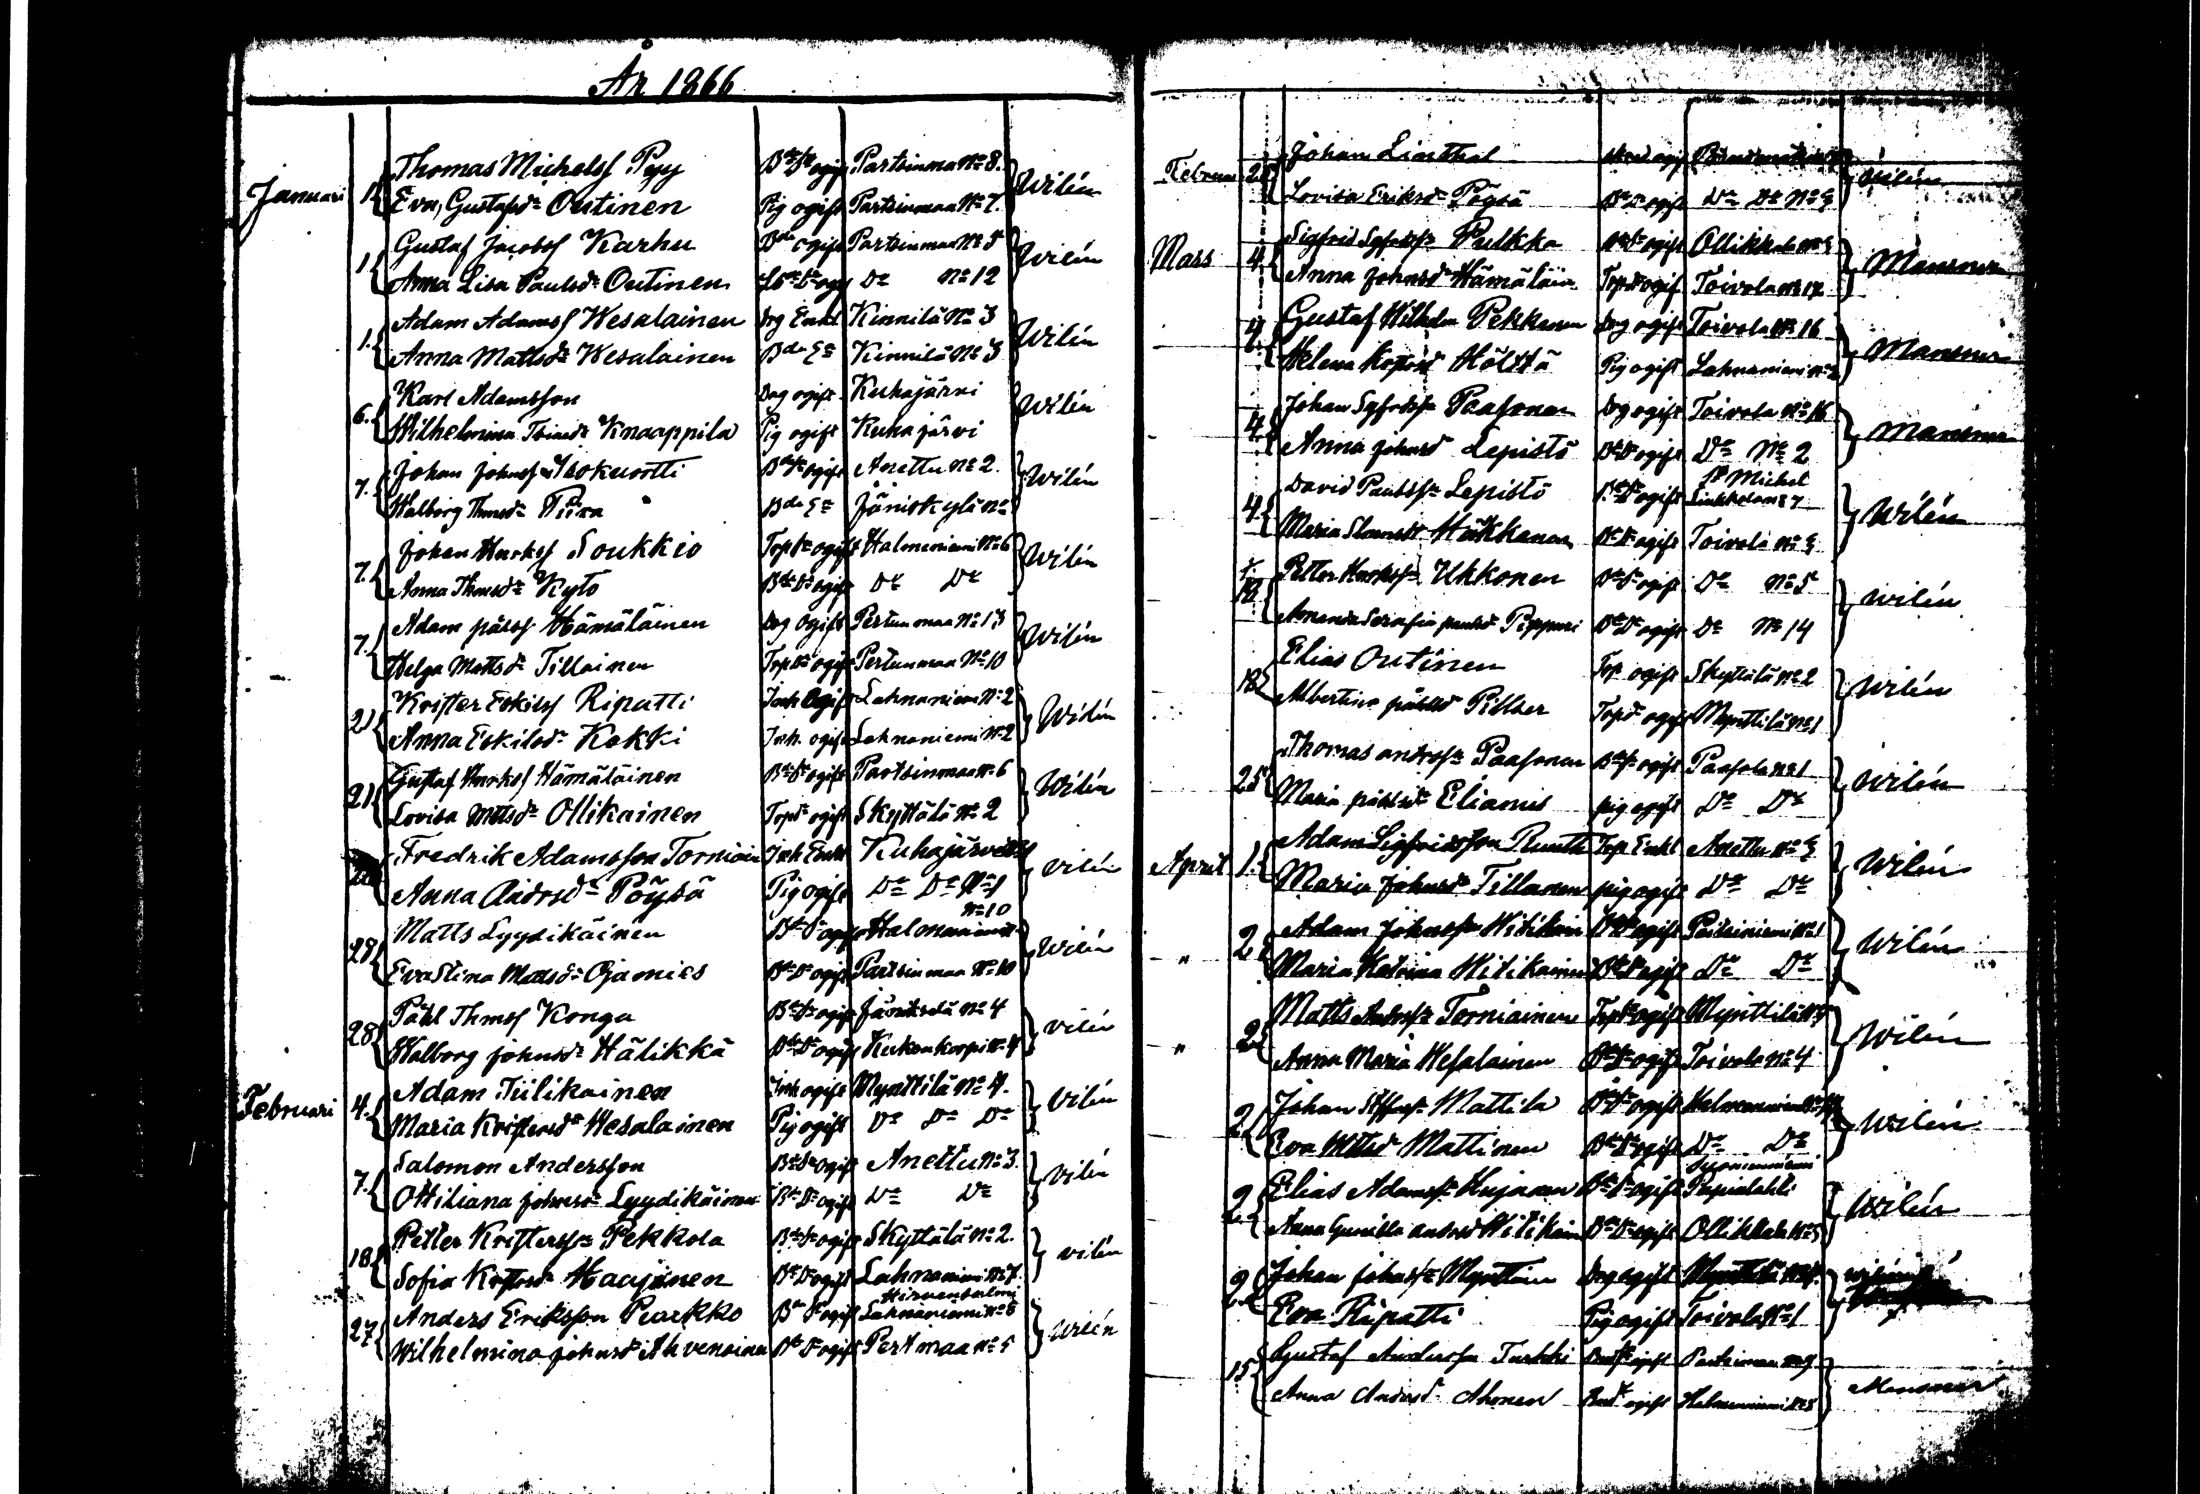 År 1866
Januari 1. Thomas Michelss Pyy Bde Sn ogift Partsinmaa No 8. Wilén
Eva, Gustafsdr Outinen Pig ogift Partsinmaa No 7.
1 Gustaf Jacobss Karhu Bde ogift Partsinmaa No 5 Wilén
Anna Lisa Paulsdr Outinen Do No 12
1. Adam Adamss Wesalainen Drg Enkl. Kinnilä No 3 Wilén
Anna Mattsdr Wesalainen Bde En Kinnilä No 3
6. Karl Adamsson Drg ogift Kuhajärvi Wilén
Wilhelmina Knaappila Pig ogift Kuhajärvi
7. Johan Johnss Isokuortti Bde Sn ogift Anettu No 2. Wilén
Walborg Thmsdr Piira Bde En Jäniskylä No
7. Johan Hnrkss Soukkio Torp Sn ogift Halmeniemi No 6 Wilén
Anna Thmsdr Kytö Bde Dr ogift Do Do
7. Adam påhlss Hämäläinen Drg ogift Pertunmaa No 13 Wilén
Helga Mattsdr Tillainen Torp Dr ogift Pertunmaa No 10
21 Krister Eskilss Ripatti Inh ogift Lahnaniemi No 2 Wilén
Anna Eskilsdr Kokki Inh. ogift Lahnaniemi No 2
21 Gustaf Hnrkss Hämäläinen Bde Sn ogift Partsinmaa No 6 Wilén
Lovisa Mttsdr Ollikainen Torp Dr ogift Skyttälä No 2
Fredrik Adamsson Torniain Inh Enkl Kuhajärvi vilén
Anna Andrsdr Pöysä Pig ogift Do Do No 1
28 Matts Lyydikäinen Bde Sn ogift Halmeniemi No 10 Wilén
Eva Stina Mattsdr Ojamies Bde Dr ogift Partsinmaa No 10
28 Påhl Thmss Konga Bde Sn ogift No 4 vilén
Walborg Johnsdr Hälikkä Bde Dr ogift Kukonkorpi No 4
Februari 4. Adam Tiilikainen Inh ogift Mynttilä No 4. vilén
Maria Kristersdr Wesalainen Pig ogift Do Do Do
7. Salomon Andersson Bde Sn ogift Anettu No 3. vilén
Ottiliana Johnsdr Lyydikäinen Bde Dr ogift Do Do
18 Petter Kristerss Pekkola Bde Sn ogift Skyttälä No 2. vilén
Sofia Kristersdr Haajanen Bde Dr ogift Lahnaniemi No 7.
Hirvensalmi
27 Anders Eriksson Pearkko Bde Sn ogift Lahnaniemi No 8 Wilén
Wilhelmina Johnsdr Ahvenainen Bde Dr ogift Pertmaa No 5
Februari Johan Linthal ogift Wilén
Lovisa Eriksdr Pöysä Bde Dr ogift Do Do No 3
Mars 4 Sigfrid Sgfrdss Pulkka Bde Sn ogift Ollikkala No 3 Månsner
Anna Johnsdr Hämäläin Torp Dr ogift Toivola No 17
4 Gustaf Wilhelm Pekkanen Drg ogift Toivola No 16 Månsner
Helena Hölttä Pig ogift Lahnaniemi No 2
4 Johan Sgfrdss Paasonen Drg ogift Toivola No 16 Månsner
Anna Johnsd Lepistö Bde Dr ogift Do No 2
St Michel
4 David Paulss Lepistö Bde Sn ogift No 7 Wilén
Maria Häkkänen Bde Dr ogift Toivola No 3
18 Petter Hnrkss Ukkonen Bde Sn ogift Do No 5 Wilén
Amanda Serafia paulsd Pippuri Bde Dr ogift Do No 14
18 Elias Outinen Torp ogift Skyttälä No 2 Wilén
Albertina påhlsd Pillser Torpd ogift Mynttilä No 1
25 Thomas andrss Paasonen Bde Sn ogift Paasola No 1 Wilén
Maria påhlsdr Eliamis pig ogift Do Do
April 1. Adam Sigfridsson Ruuth Torp Enkl Anettu No 3 Wilén
Maria Johnsdr Tillanen pig ogift Do Do
2 Adam Johnss Hitikäin ogift No 1 Wilén
Maria Katrina Hitikainen ogift Do Do
2 Matts Andrss Torniainen Torp Sn ogift Mynttilä No Wilén
Anna Maria Wesalainen Bde Dr ogift Toivola No 4
2 Johan Stffnss Mattila Bde Sn ogift Halmeniemi Wilén
Eva Mttsd Mattinen Bde Dr ogift Do Do
2 Elias Adamss Hujanen Bde Sn ogift Wilén
Anna Gunilla andrsd Hitikäin Bde Dr ogift Ollikkala No 5
2 Johan Johnss Mynttinen Drg ogift Mynttilä Wilén
Eva Ripatti Pig ogift Toivola No 1
15 Gustaf Andersson Turkki ogift Partsinmaa No 9 Månsner
Anna Andrsd Ahonen ogift Halmeniemi No 8